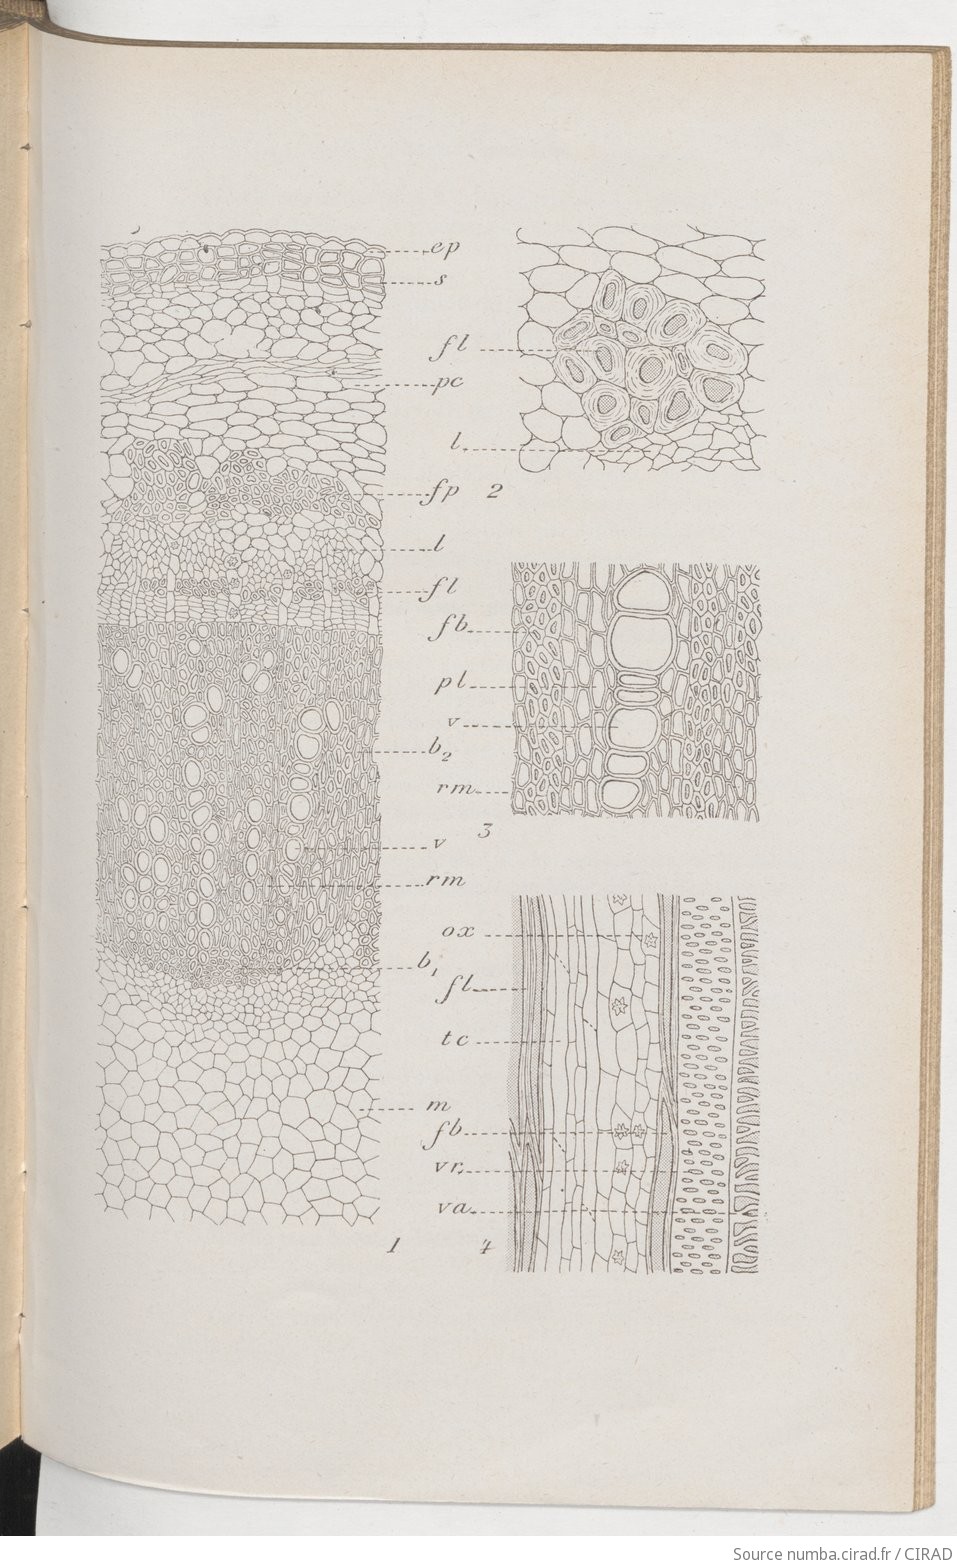 ep
s
fl
pc
l
fp 2
l
fl
fb
pl
v
b2
rm
3
v
rm
ox
b1
fl
tc
m
fb
vr
va
1 4
Source numba.cirad.fr / CIRAD